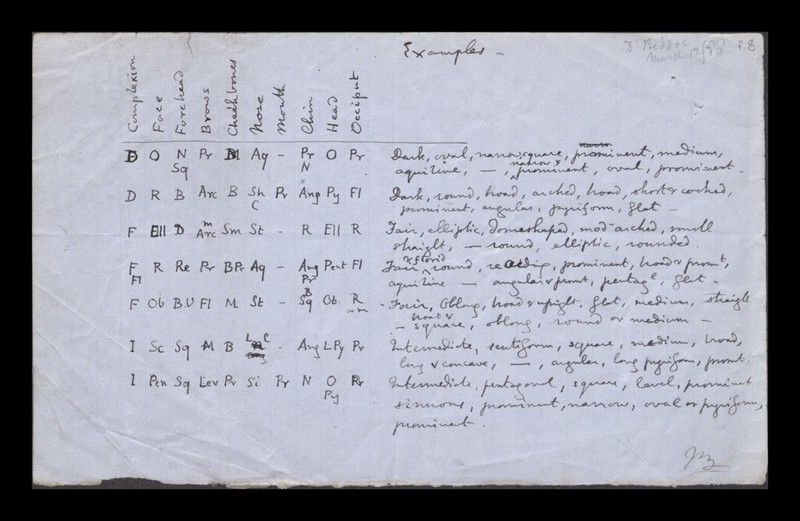 Examples -
Dr Beddoe
f.8
Complexion Face Forehead Brows Cheekbones Nose Mouth Chin Head Occiput
D O N Pr M Aq - Pr O Pr Dark, oval, narrow square, prominent, medium,
Sq N aquiline, -, narrow & prominent, oval, prominent.
D R B Arc B Sh Pr Ang Py Fl Dark, round, broad, arched, broad, short & cocked,
C prominent, angular, pyriform, flat -
F Ell D m Arc Sm St - R Ell R Fair, elliptic, domeshaped, mod arched, small
straight, - round, elliptic, rounded.
F R Re Pr BPr Aq - Ang Pent Fl Fair & florid round, receding, prominent, broad & promt,
Fl Pr aquiline - angular & promt, pentagl, flat -
F Ob BU Fl M St - B Sq Ob R Fair, oblong, broad & upright, flat, medium, straight
m - broad & square, oblong, round or medium -
I Sc Sq M B L C - Ang LPy Pr Intermediate, scutiform, square, medium, broad,
long & concave, -, angular, long pyriform, promt.
I Pen Sq Lev Pr Si Pr N O Pr Intermediate, pentagonal, square, level, prominent
Py sinuous, prominent, narrow, oval or pyriform,
prominent.